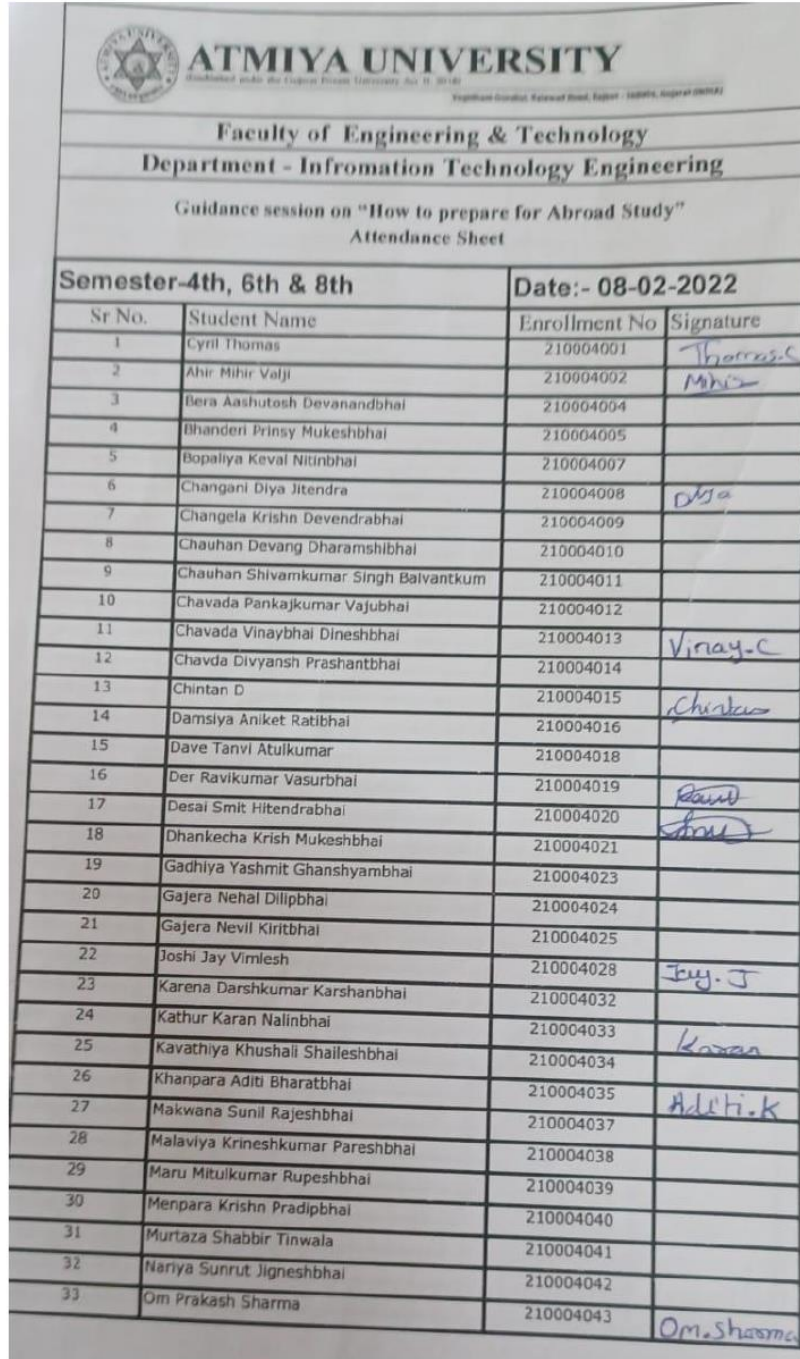 ATMIYA UNIVERSITY
Faculty of Engineering & Technology
Department - Infromation Technology Engineering
Guidance session on "How to prepare for Abroad Study"
Attendance Sheet
Semester-4th, 6th & 8th Date:- 08-02-2022
Sr No. Student Name Enrollment No Signature
1 Cyril Thomas 210004001 Thomas.C
2 Ahir Mihir Valji 210004002 Mihir
3 Bera Aashutosh Devanandbhai 210004004
4 Bhanderi Prinsy Mukeshbhai 210004005
5 Bopaliya Keval Nitinbhai 210004007
6 Changani Diya Jitendra 210004008 Diya
7 Changela Krishn Devendrabhai 210004009
8 Chauhan Devang Dharamshibhai 210004010
9 Chauhan Shivamkumar Singh Balvantkum 210004011
10 Chavada Pankajkumar Vajubhai 210004012
11 Chavada Vinaybhai Dineshbhai 210004013 Vinay.C
12 Chavda Divyansh Prashantbhai 210004014
13 Chintan D 210004015 Chintan
14 Damsiya Aniket Ratibhai 210004016
15 Dave Tanvi Atulkumar 210004018
16 Der Ravikumar Vasurbhai 210004019
17 Desai Smit Hitendrabhai 210004020
18 Dhankecha Krish Mukeshbhai 210004021
19 Gadhiya Yashmit Ghanshyambhai 210004023
20 Gajera Nehal Dilipbhai 210004024
21 Gajera Nevil Kiritbhai 210004025
22 Joshi Jay Vimlesh 210004028 Jay. J
23 Karena Darshkumar Karshanbhai 210004032
24 Kathur Karan Nalinbhai 210004033 Karan
25 Kavathiya Khushali Shaileshbhai 210004034
26 Khanpara Aditi Bharatbhai 210004035 Aditi.K
27 Makwana Sunil Rajeshbhai 210004037
28 Malaviya Krineshkumar Pareshbhai 210004038
29 Maru Mitulkumar Rupeshbhai 210004039
30 Menpara Krishn Pradipbhai 210004040
31 Murtaza Shabbir Tinwala 210004041
32 Nariya Sunrut Jigneshbhai 210004042
33 Om Prakash Sharma 210004043 Om.Sharma